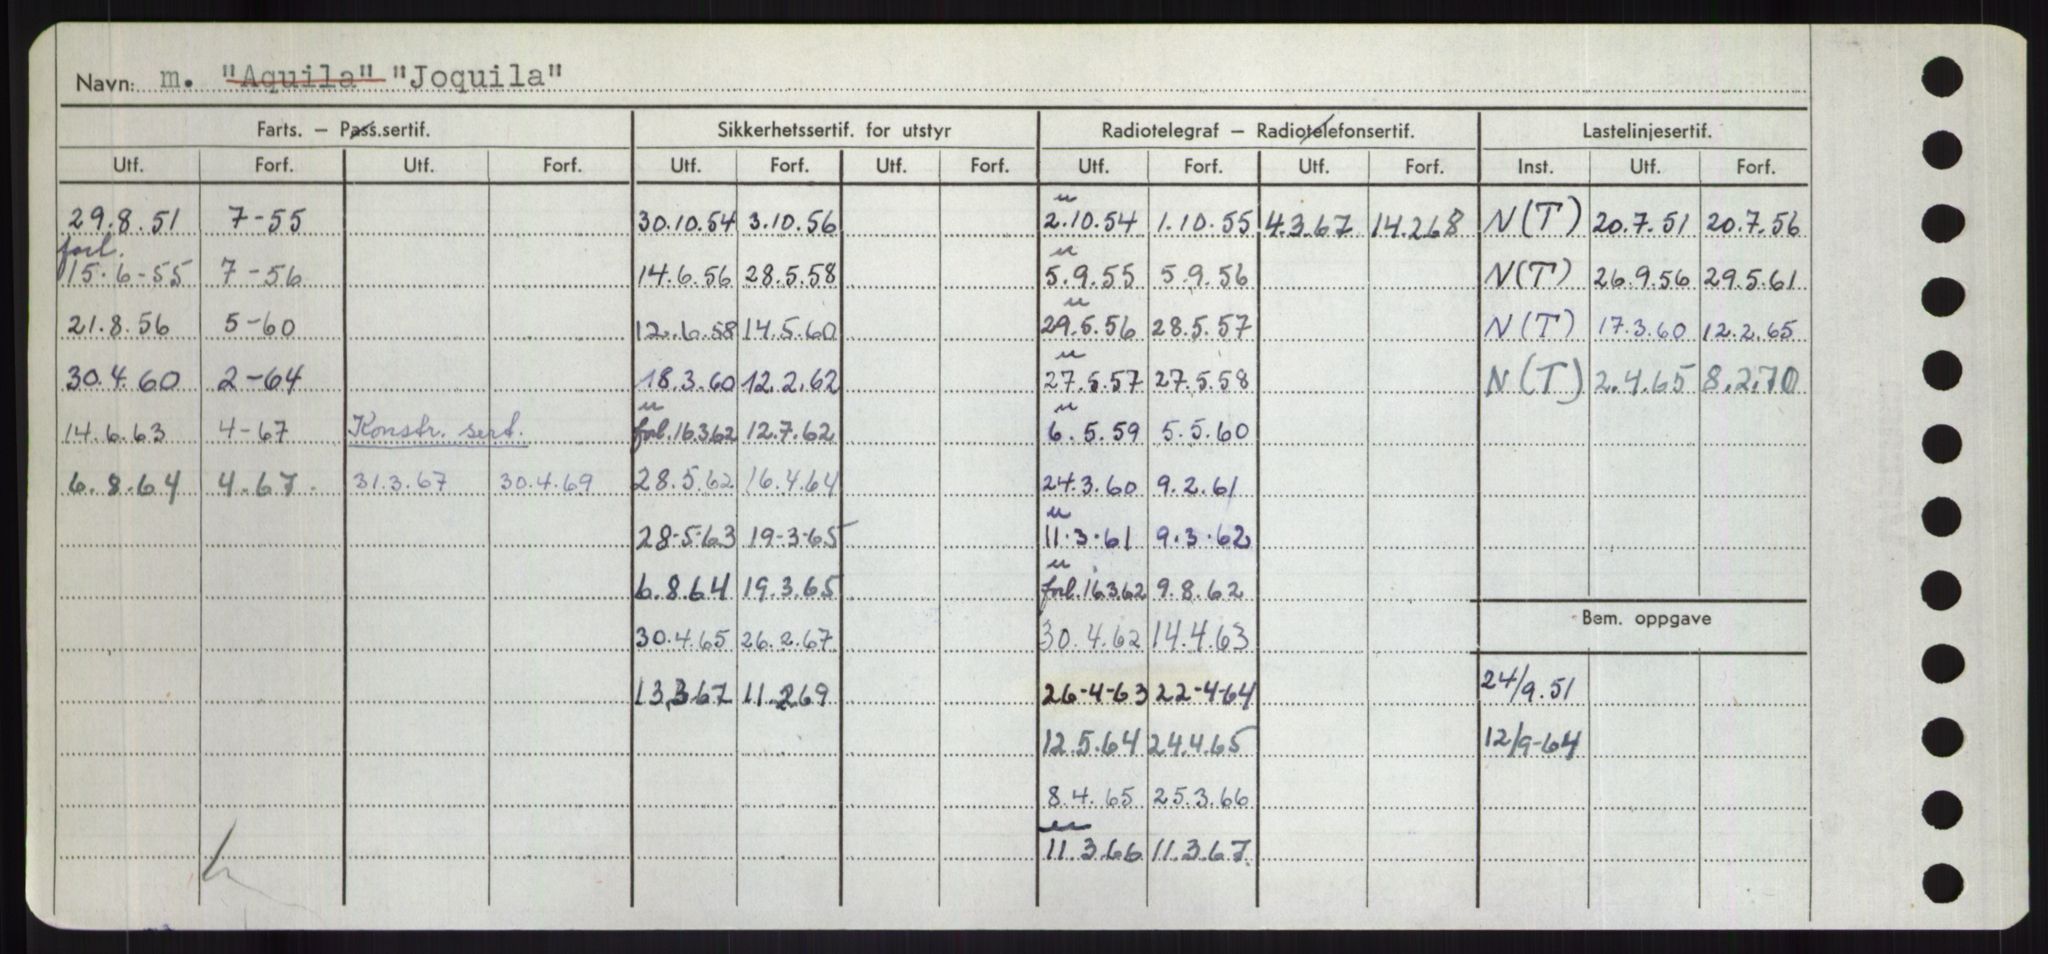 Navn: m. "Aquila" "Joquila"
Farts. — Pass.sertif. Sikkerhetssertif. for utstyr Radiotelegraf — Radiotelefonsertif. Lastelinjesertif.
Utf. Forf. Utf. Forf. Utf. Forf. Utf. Forf. Utf. Forf. Utf. Forf. Inst. Utf. Forf.
29.8.51 7-55 30.10.54 3.10.56 u 2.10.54 1.10.55 4.3.67 14.2.68 N(T) 20.7.51 20.7.56
forl. 15.6-55 7-56 14.6.56 28.5.58 u 5.9.55 5.9.56 N(T) 26.9.56 29.5.61
21.8.56 5-60 12.6.58 14.5.60 u 29.5.56 28.5.57 N(T) 17.3.60 12.2.65
30.4.60 2-64 18.3.60 12.2.62 u 27.5.57 27.5.58 N(T) 2.4.65 8.2.70
14.6.63 4-67 Konstr. sert. u forl. 16.3.62 12.7.62 u 6.5.59 5.5.60
6.8.64 4.67. 31.3.67 30.4.69 28.5.62 16.4.64 24.3.60 9.2.61
28-5-63 19-3-65 u 11.3.61 9.3.62
6.8.64 19.3.65 u forl. 16.3.62 9.8.62
Bem. oppgave
30.4.65 26.2.67 30.4.62 14.4.63
13.3.67 11.2.69 26-4-63 22-4-64 24/9.51
12.5.64 24.4.65 12/9-64
8.4.65 25.3.66
u 11.3.66 11.3.67.